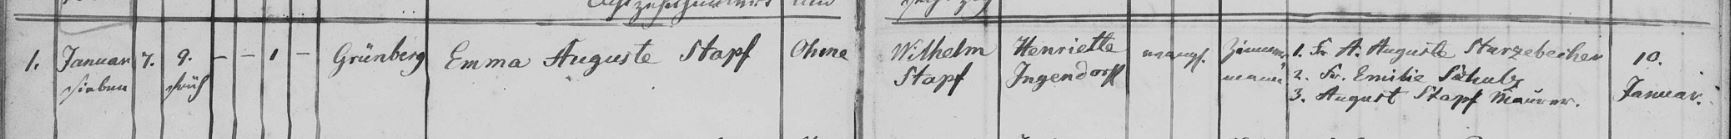 1. Januar 7. 9. – – 1 – Grünberg Emma Auguste Stapf Ohme Wilhelm Henriette evangl. Zimmer- 1. Fr. A. Auguste Starzebecher 10.
sieben früh Stapf Ingendorff mann 2. Fr. Emilie Schulz Januar.
3. August Stapf Maurer.